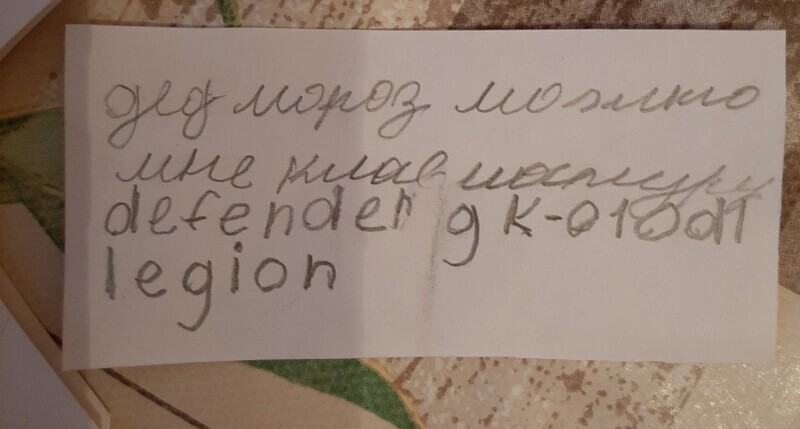 дед мороз можно
мне клавиатуру
defender gk-010dl
legion